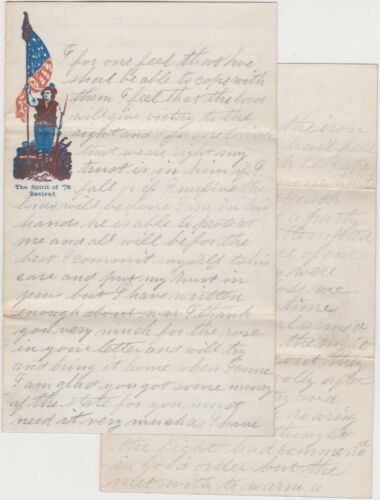 I for one feel that we
shal be able to cope with
them I feel that the lord
will give victory to the
right and I for one think
that we are right my
trust is in him if I
fall or if I survive the
lords will be done I am in his
hands he is able to protect
me and all will be for the
best I commit myself to his
care and put my trust in
jesus but I have written
enough about war I thank
you very much for the rose
in your letter and will try
and bring it home when I come
I am glad you got some money
of the state for you must
need it very much as I have
The Spirit of '76
Revived.
the iron
feel
party
of our
were
we
time
alarmed
the night
they
after
and
roaring
thought
the fight had commenced
in good order but the
met with to warm a